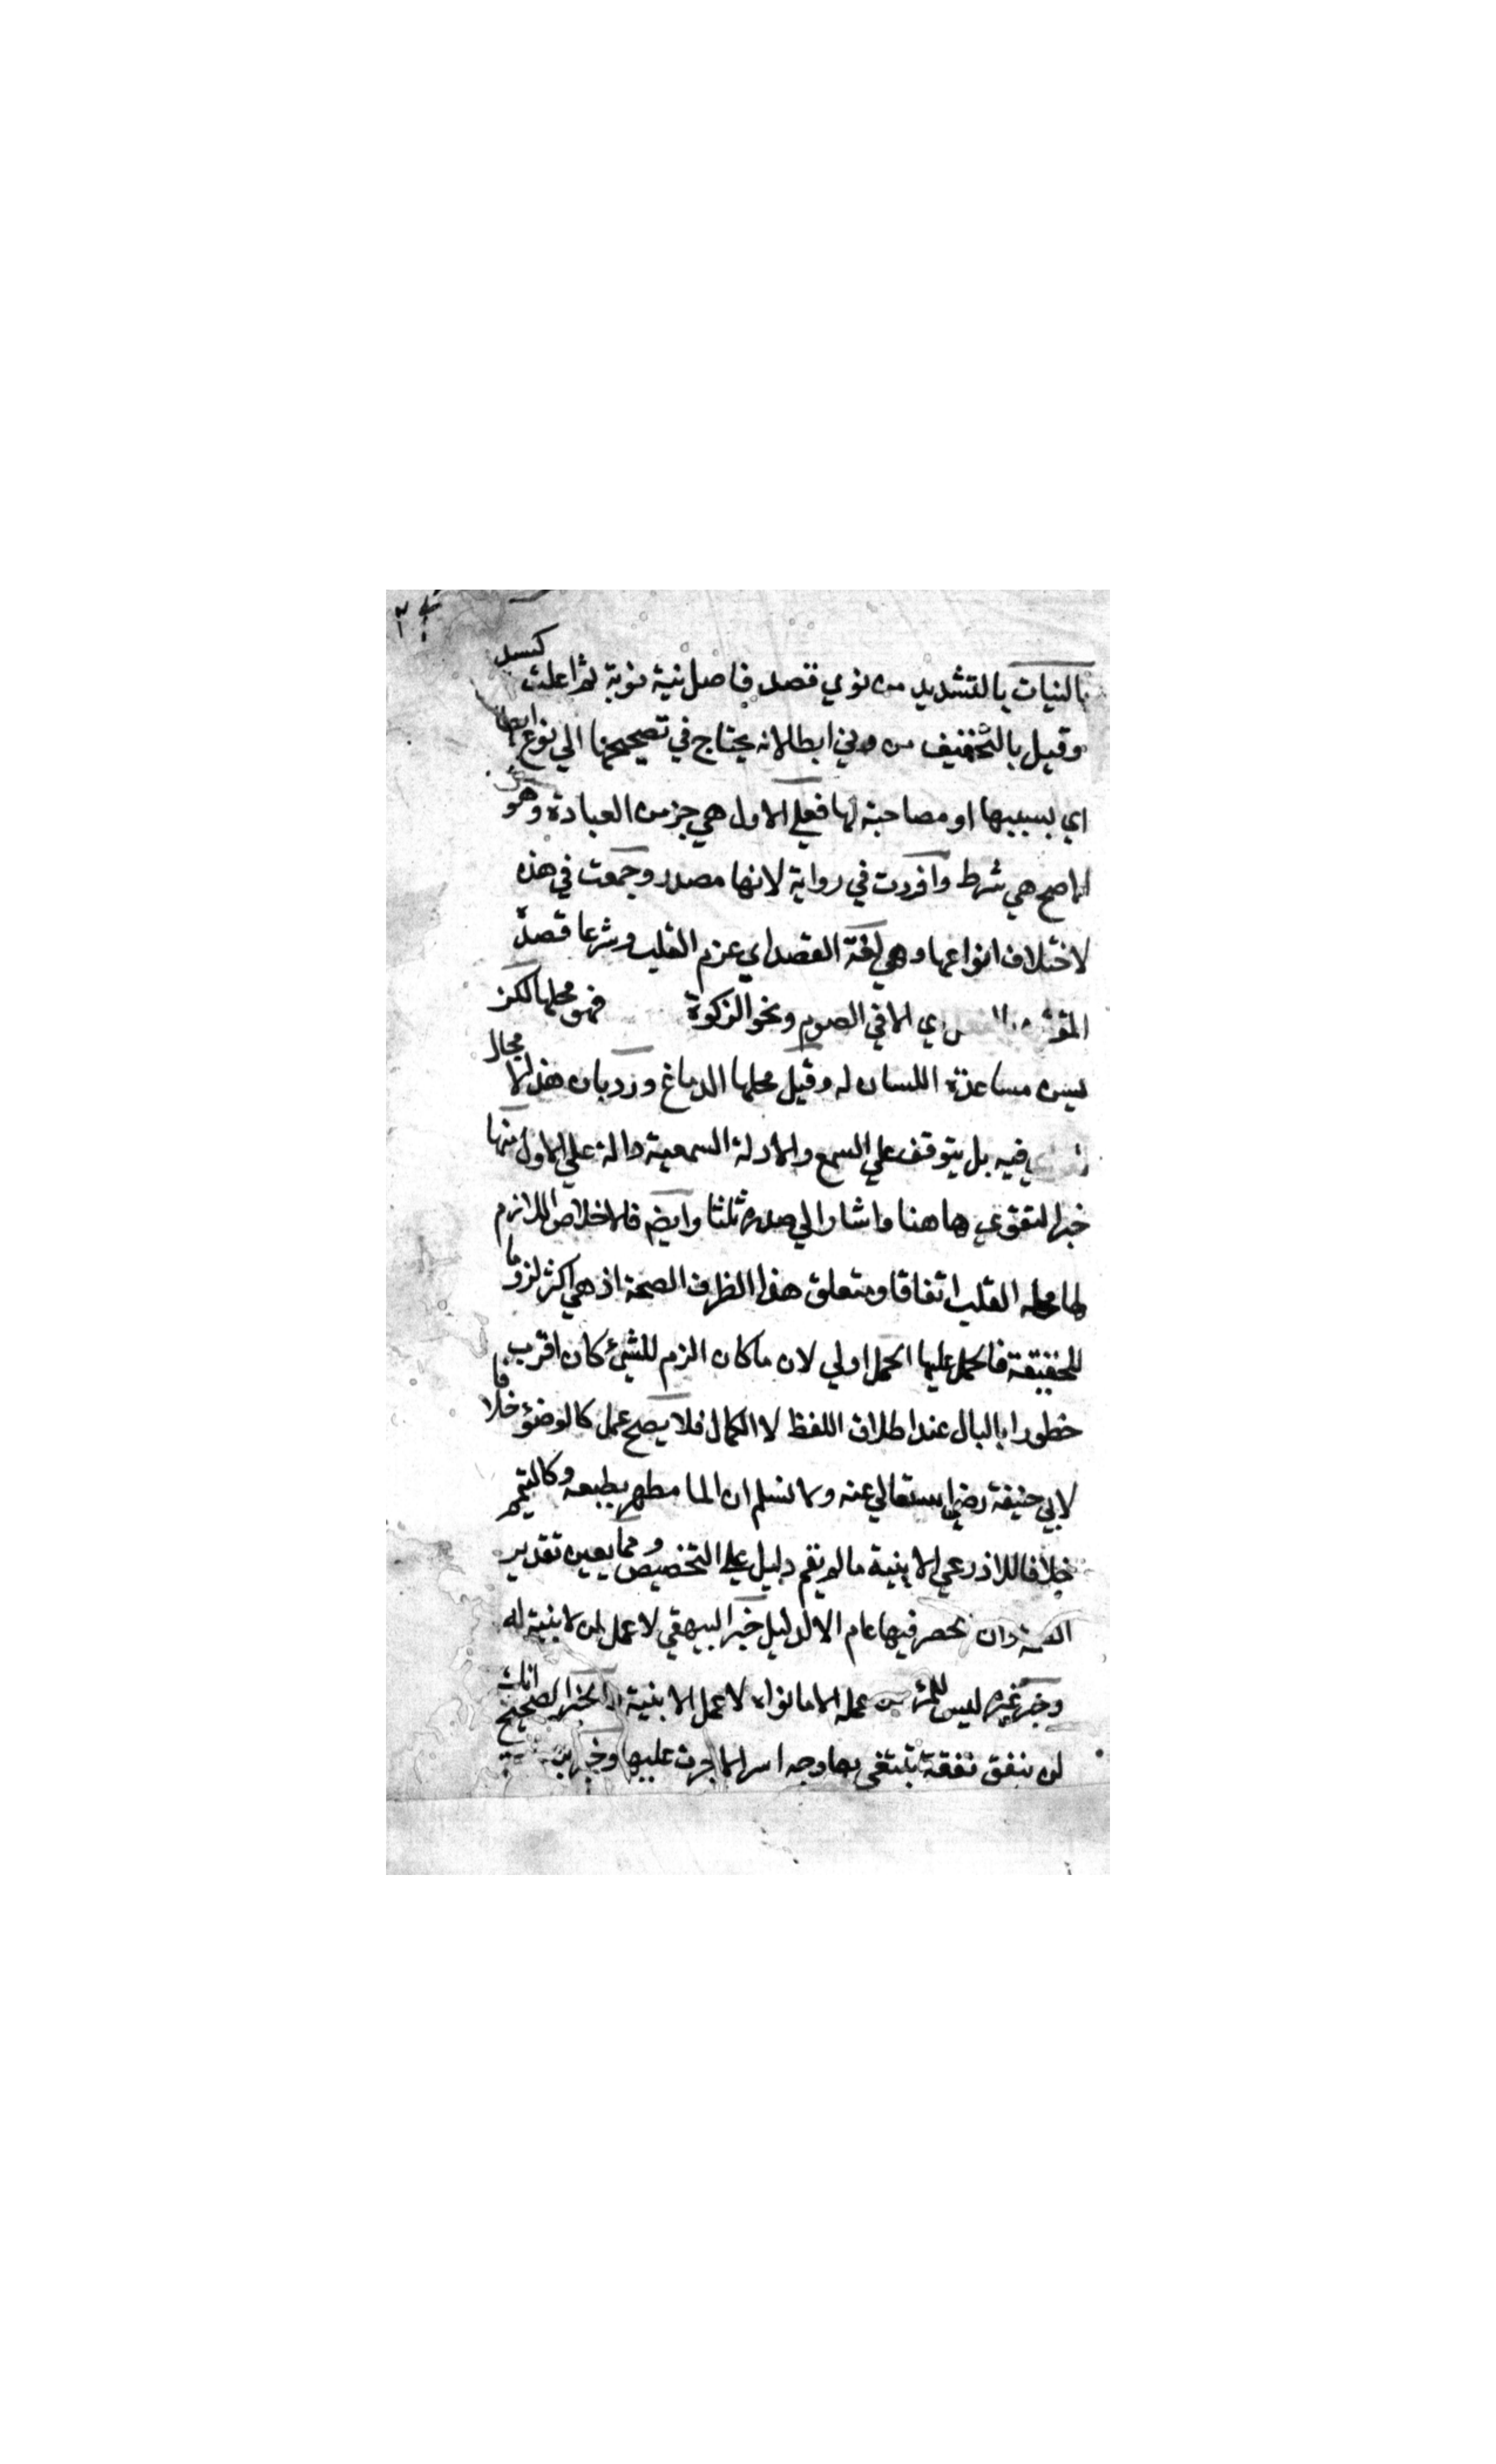 بالنيات بالتشديد من نوي قصد فاصل نية نوية ثم اعلت كسيد
وقيل بالتخفيف من وني ابطا لانه يحتاج في تصحيحها الي نوع ابطا
اي بسببها او مصاحبة لها فعلي الاول هي جز من العبادة وهو
الاصح هي شرط وافردت في رواية لانها مصدر وجمعت في هذه
لاختلاف انواعها وهي لغة القصد اي عزم القلب وشرعا قصد
الا في الصوم ونحو الزكوة فهو محلها لكن
يسن مساعدة اللسان له وقيل محلها الدماغ ورد بان هذا لا مجال
فيه بل يتوقف علي السمع والادلة السمعية دالة علي الاول منها
خبر التقوي هاهنا واشار الي صدره ثلثا وايضا فالاخلاص اللازم
لها محله القلب اتفاقا ومتعلق هذا الظرف الصحة اذ هي اكثر لزوما
للحقيقة فالحمل عليها اولي لان ما كان الزم للشئ كان اقرب
خطورا بالبال عند اطلاق اللفظ لا الكمال فلا يصح عمل كالوضؤ خلافا
لابي حنيفة رضي الله تعالي عنه ولا نسلم ان الما مطهر بطبعه وكالتيمم
خلافا للاذرعي الا بنية ما لم يقم دليل علي التخصيص ومما يعين تقدير
الصحة وان الحصر فيها عام الا لدليل خبر البيهقي لا عمل لمن لا نية له
وخبر غيره ليس للمرء من عمله الا ما نواه لا عمل الا بنية الخبر الصحيح انك
لن تنفق نفقة تبتغي بها وجه الله الا اجرت عليها وخبر